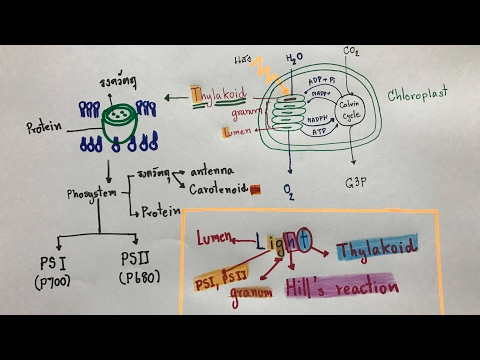 รงควัตถุ
Protein
Thylakoid
granum
Lumen
แสง
H₂O
CO₂
ADP + Pi
NADP+
NADPH
ATP
Calvin
Cycle
Chloroplast
O₂
G3P
Phosystem
รงควัตถุ
antenna
Carotenoid
Protein
PS I
(P700)
PS II
(P680)
Lumen
Light
Thylakoid
PSI, PSII
granum
Hill's reaction